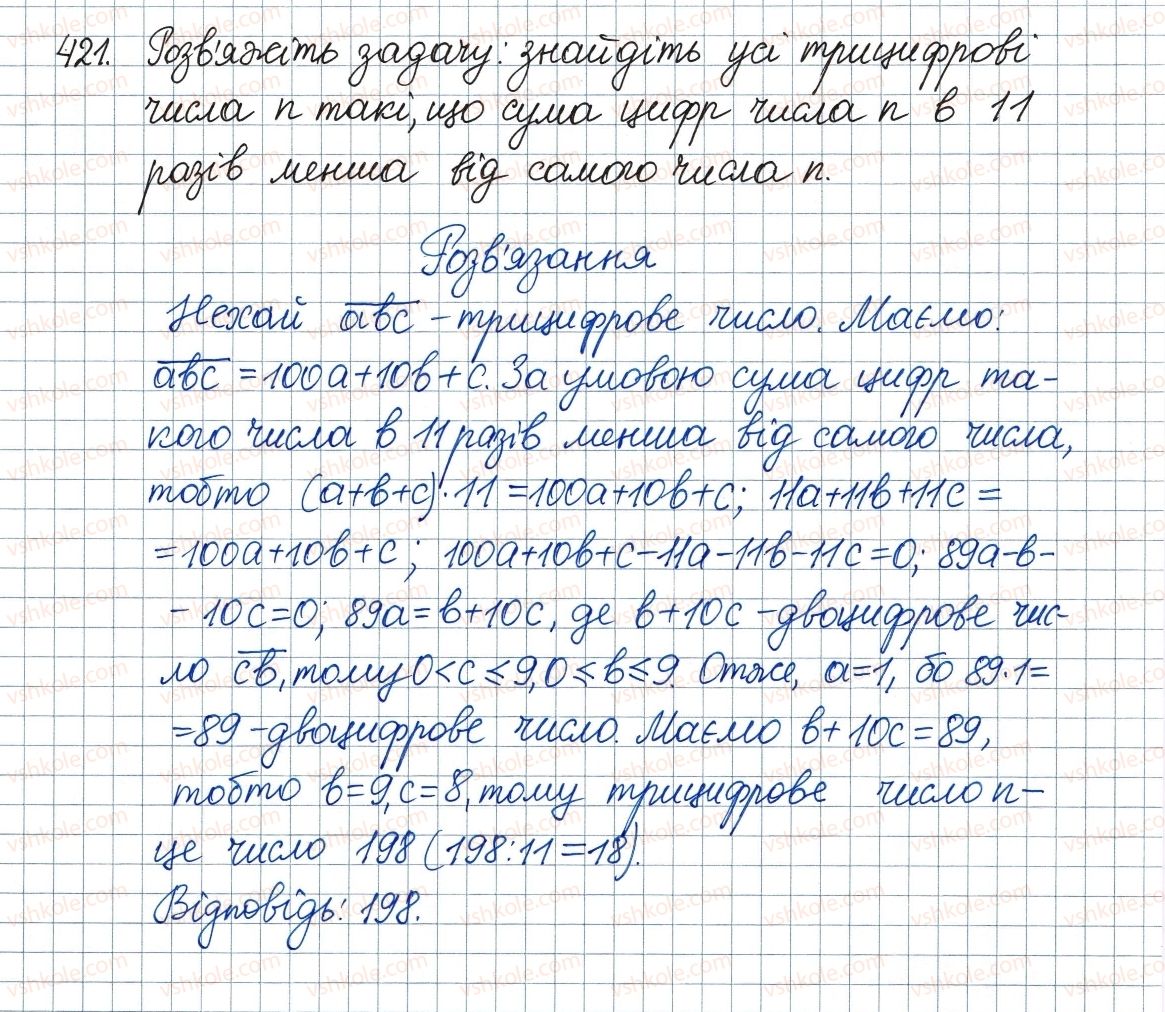 421. Розв'яжіть задачу: знайдіть усі трицифрові
числа n такі, що сума цифр числа n в 11
разів менша від самого числа n.
Розв'язання
Нехай abc – трицифрове число. Маємо:
abc = 100a+10b+c. За умовою сума цифр та-
кого числа в 11 разів менша від самого числа,
тобто (a+b+c)·11 = 100a+10b+c; 11a+11b+11c =
= 100a+10b+c; 100a+10b+c-11a-11b-11c=0; 89a-b-
- 10c=0; 89a=b+10c, де b+10c – двоцифрове чис-
ло cb, тому 0<c≤9, 0≤b≤9. Отже, a=1, бо 89·1=
=89 – двоцифрове число. Маємо b+10c=89,
тобто b=9, c=8, тому трицифрове число n –
це число 198 (198:11=18).
Відповідь: 198.